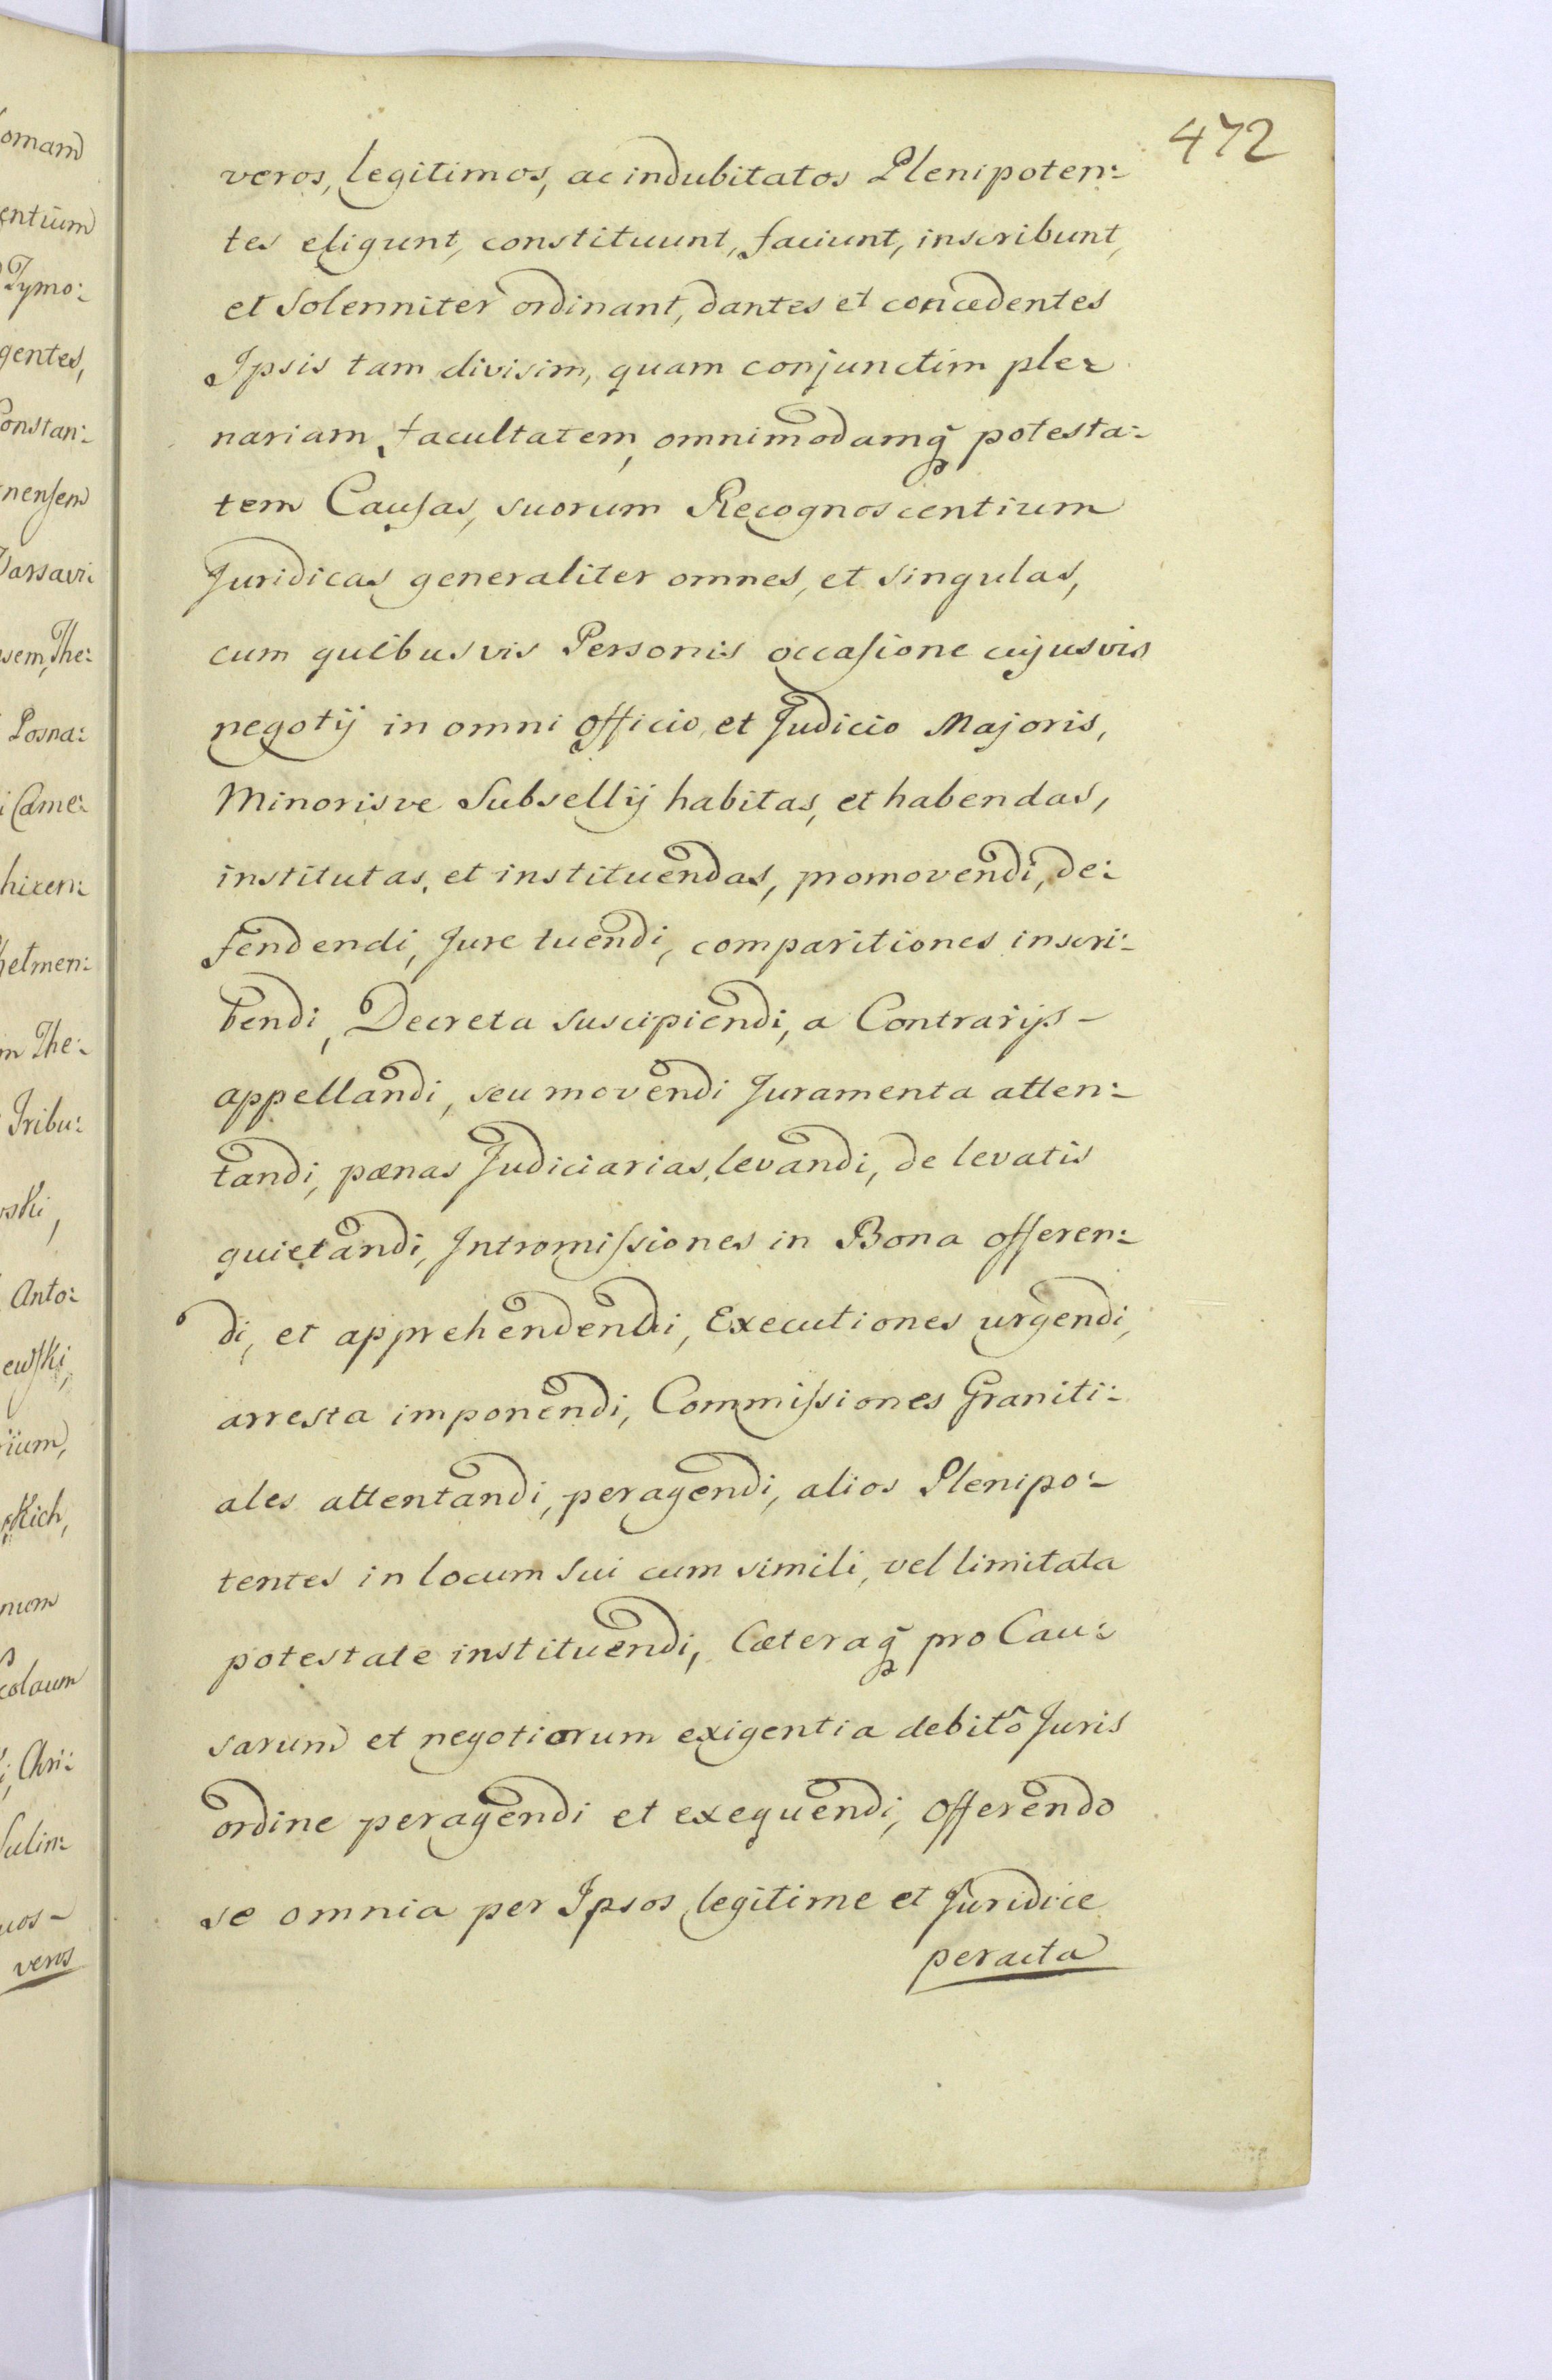 472
veros, legitimos, ac indubitatos Plenipoten:
tes eligunt, constituunt, faciunt, inscribunt,
et Solenniter ordinant, dantes et concedentes
Ipsis tam divisim, quam conjunctim ple:
nariam facultatem, omnimodamq̃ potesta:
tem Causas, suorum Recognoscentium
Juridicas generaliter omnes, et singulas,
cum quibusvis Personis occasione cujusvis
negotij in omni Officio, et Judicio Majoris,
Minorisve Subsellij habitas, et habendas,
institutas, et instituendas, promovendi, de:
fendendi, Jure tuendi, comparitiones inscri:
bendi, Decreta suscipiendi, a Contrarijs -
appellandi, seu movendi Juramenta atten:
tandi, pænas Judiciarias, levandi, de levatis
quietandi, Intromissiones in Bona offeren:
di, et apprehendendi, Executiones urgendi,
arresta imponendi, Commissiones Graniti:
ales attentandi, peragendi, alios Plenipo:
tentes in locum Sui cum simili, vel limitata
potestate instituendi, Cæteraq̃ pro Cau:
sarum et negotiorum exigentia debitô Juris
ordine peragendi et exequendi, Offerendo
se omnia per Ipsos legitime et Juridice
peracta
omam
entium
Tymo:
gentes,
onstan:
nensem
arsavi
sem, The:
Posna:
i Came:
hixen:
helmen:
m The:
Tribu:
ski,
Anto:
ewski,
ium,
skich,
num
colaum
i, Chri:
Sulin:
uos -
veros